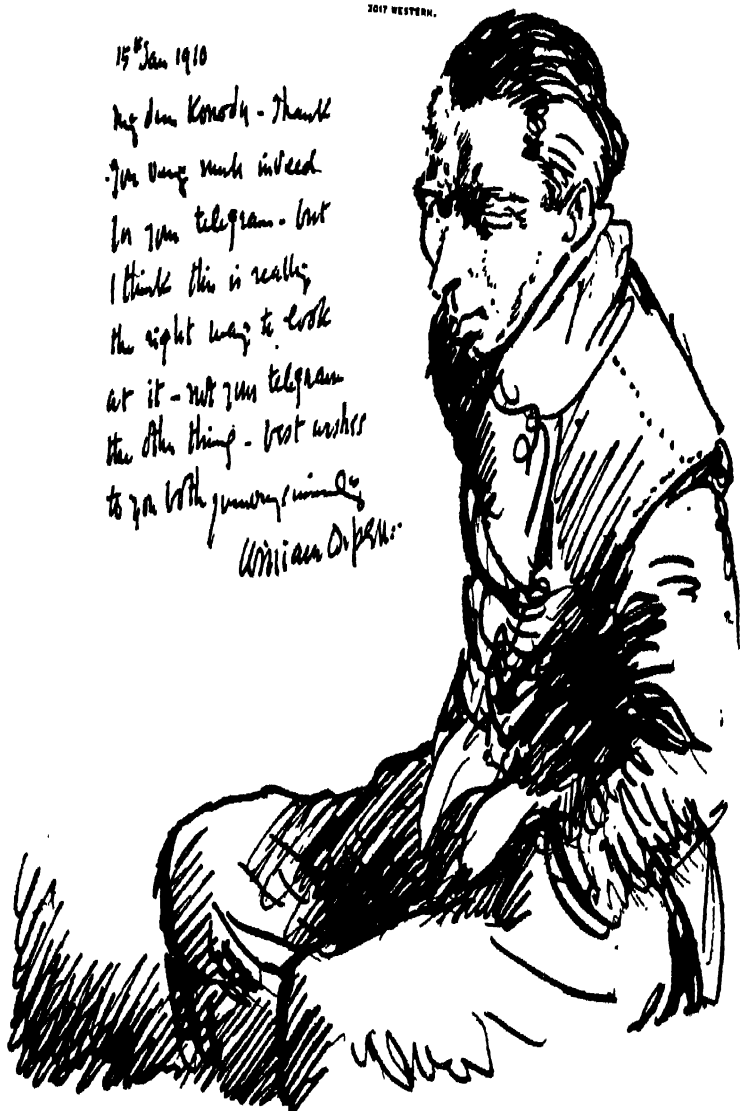 2017 WESTERN.
15th Jan 1910
My dear Konody - Thank
you very much indeed
for your telegram - but
I think this is really
the right way to look
at it - not your telegram
the other thing - best wishes
to you both yours sincerely
William Orpen.